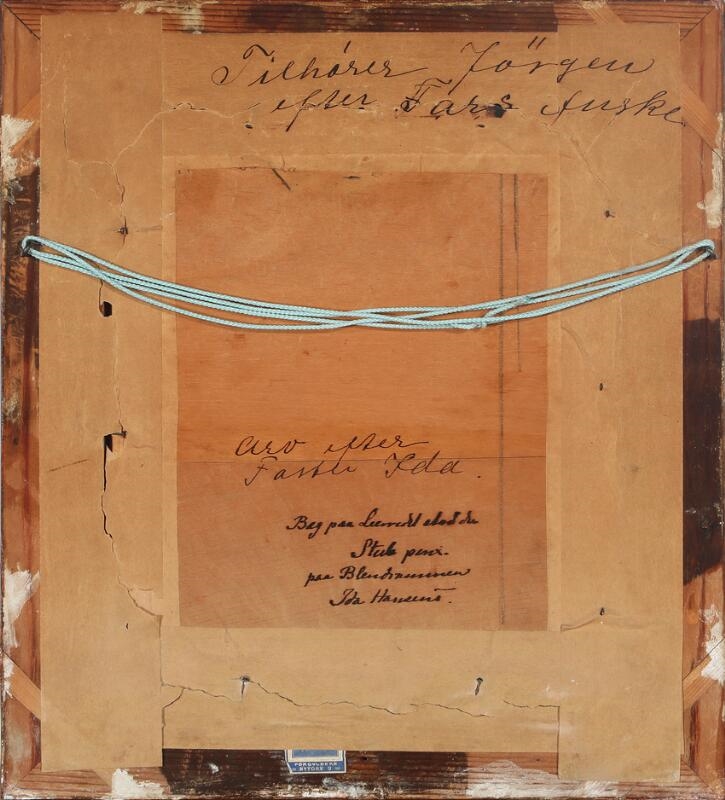 Tilhører Jörgen
efter Fars Ønske
Arv efter
Faster Ida.
Bag paa Lærredet stod der
Stub pinx.
paa Blendrammen
Ida Hansens.
FORGYLDERE
NYTORV 9